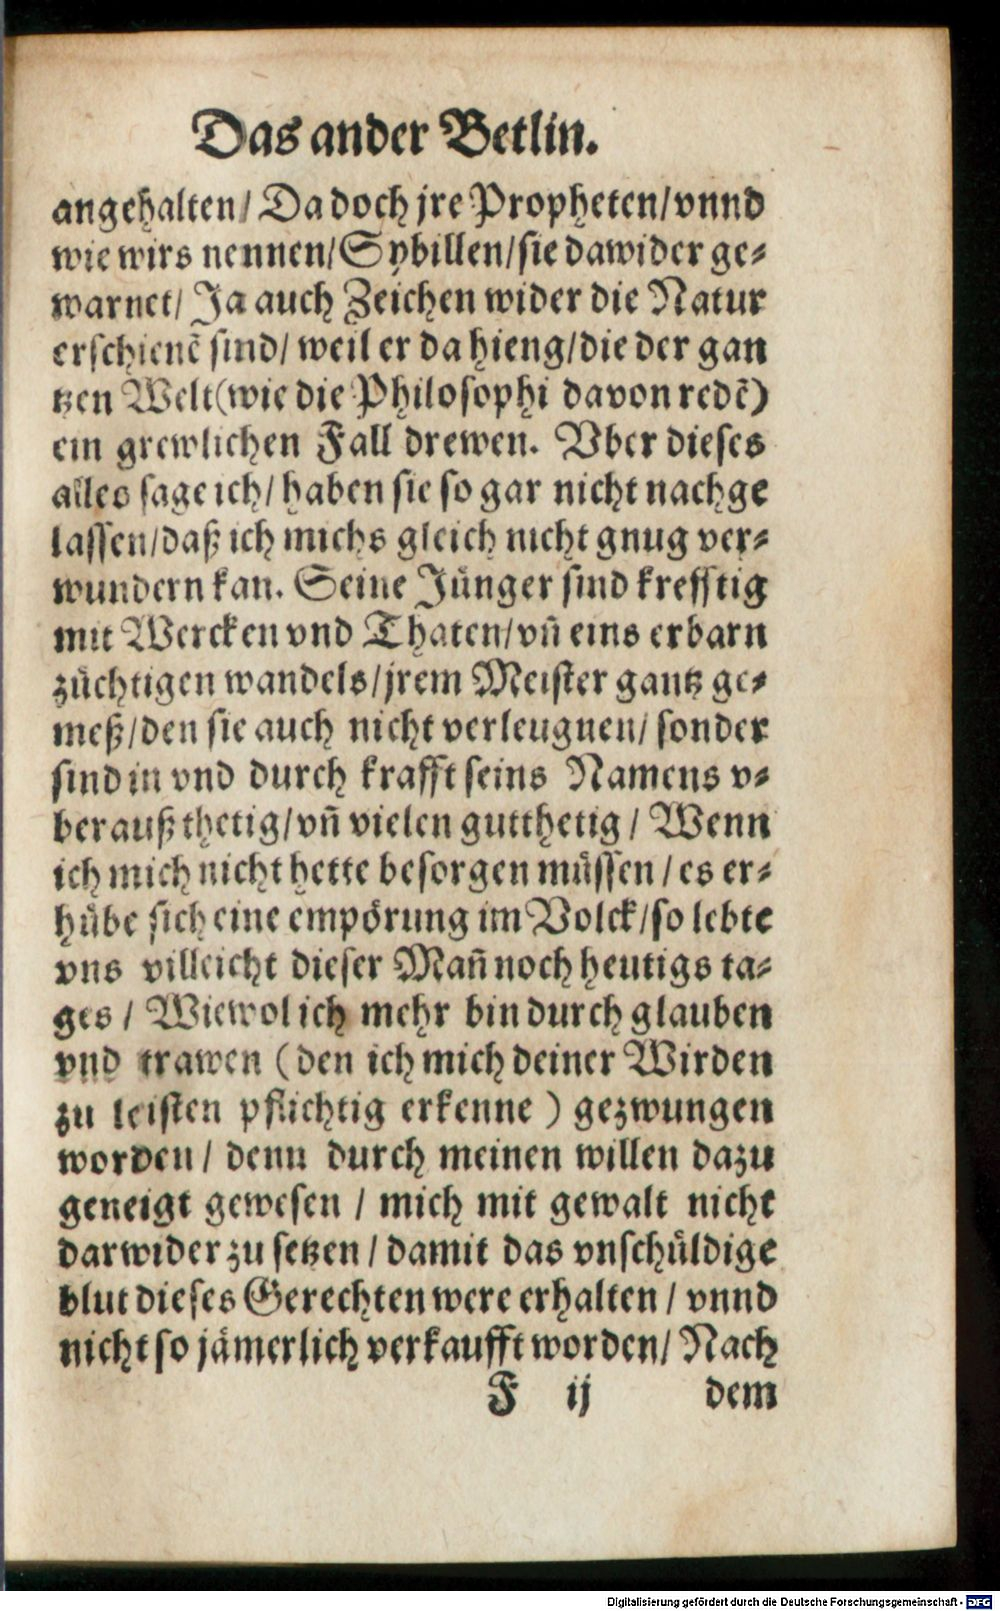 Das ander Betlin.
angehalten/ Da doch jre Propheten/ vnnd
wie wirs nennen/ Sybillen/ sie dawider ge-
warnet/ Ja auch Zeichen wider die Natur
erschienẽ sind/ weil er da hieng/ die der gan
tzen Welt (wie die Philosophi davon redẽ)
ein grewlichen Fall drewen. Vber dieses
alles sage ich/ haben sie so gar nicht nachge
lassen/ daß ich michs gleich nicht gnug ver-
wundern kan. Seine Jünger sind krefftig
mit Wercken vnd Thaten/ vñ eins erbarn
züchtigen wandels/ jrem Meister gantz ge-
meß/ den sie auch nicht verleugnen/ sonder
sind in vnd durch krafft seins Namens v-
berauß thetig/ vñ vielen gutthetig/ Wenn
ich mich nicht hette besorgen müssen/ es er-
hübe sich eine empörung im Volck/ so lebte
vns villeicht dieser Mañ noch heutigs ta-
ges/ Wiewol ich mehr bin durch glauben
vnd trawen (den ich mich deiner Wirden
zu leisten pflichtig erkenne) gezwungen
worden/ denn durch meinen willen dazu
geneigt gewesen/ mich mit gewalt nicht
darwider zu setzen/ damit das vnschüldige
blut dieses Gerechten were erhalten/ vnnd
nicht so jämerlich verkaufft worden/ Nach
F ij dem
Digitalisierung gefördert durch die Deutsche Forschungsgemeinschaft - DFG